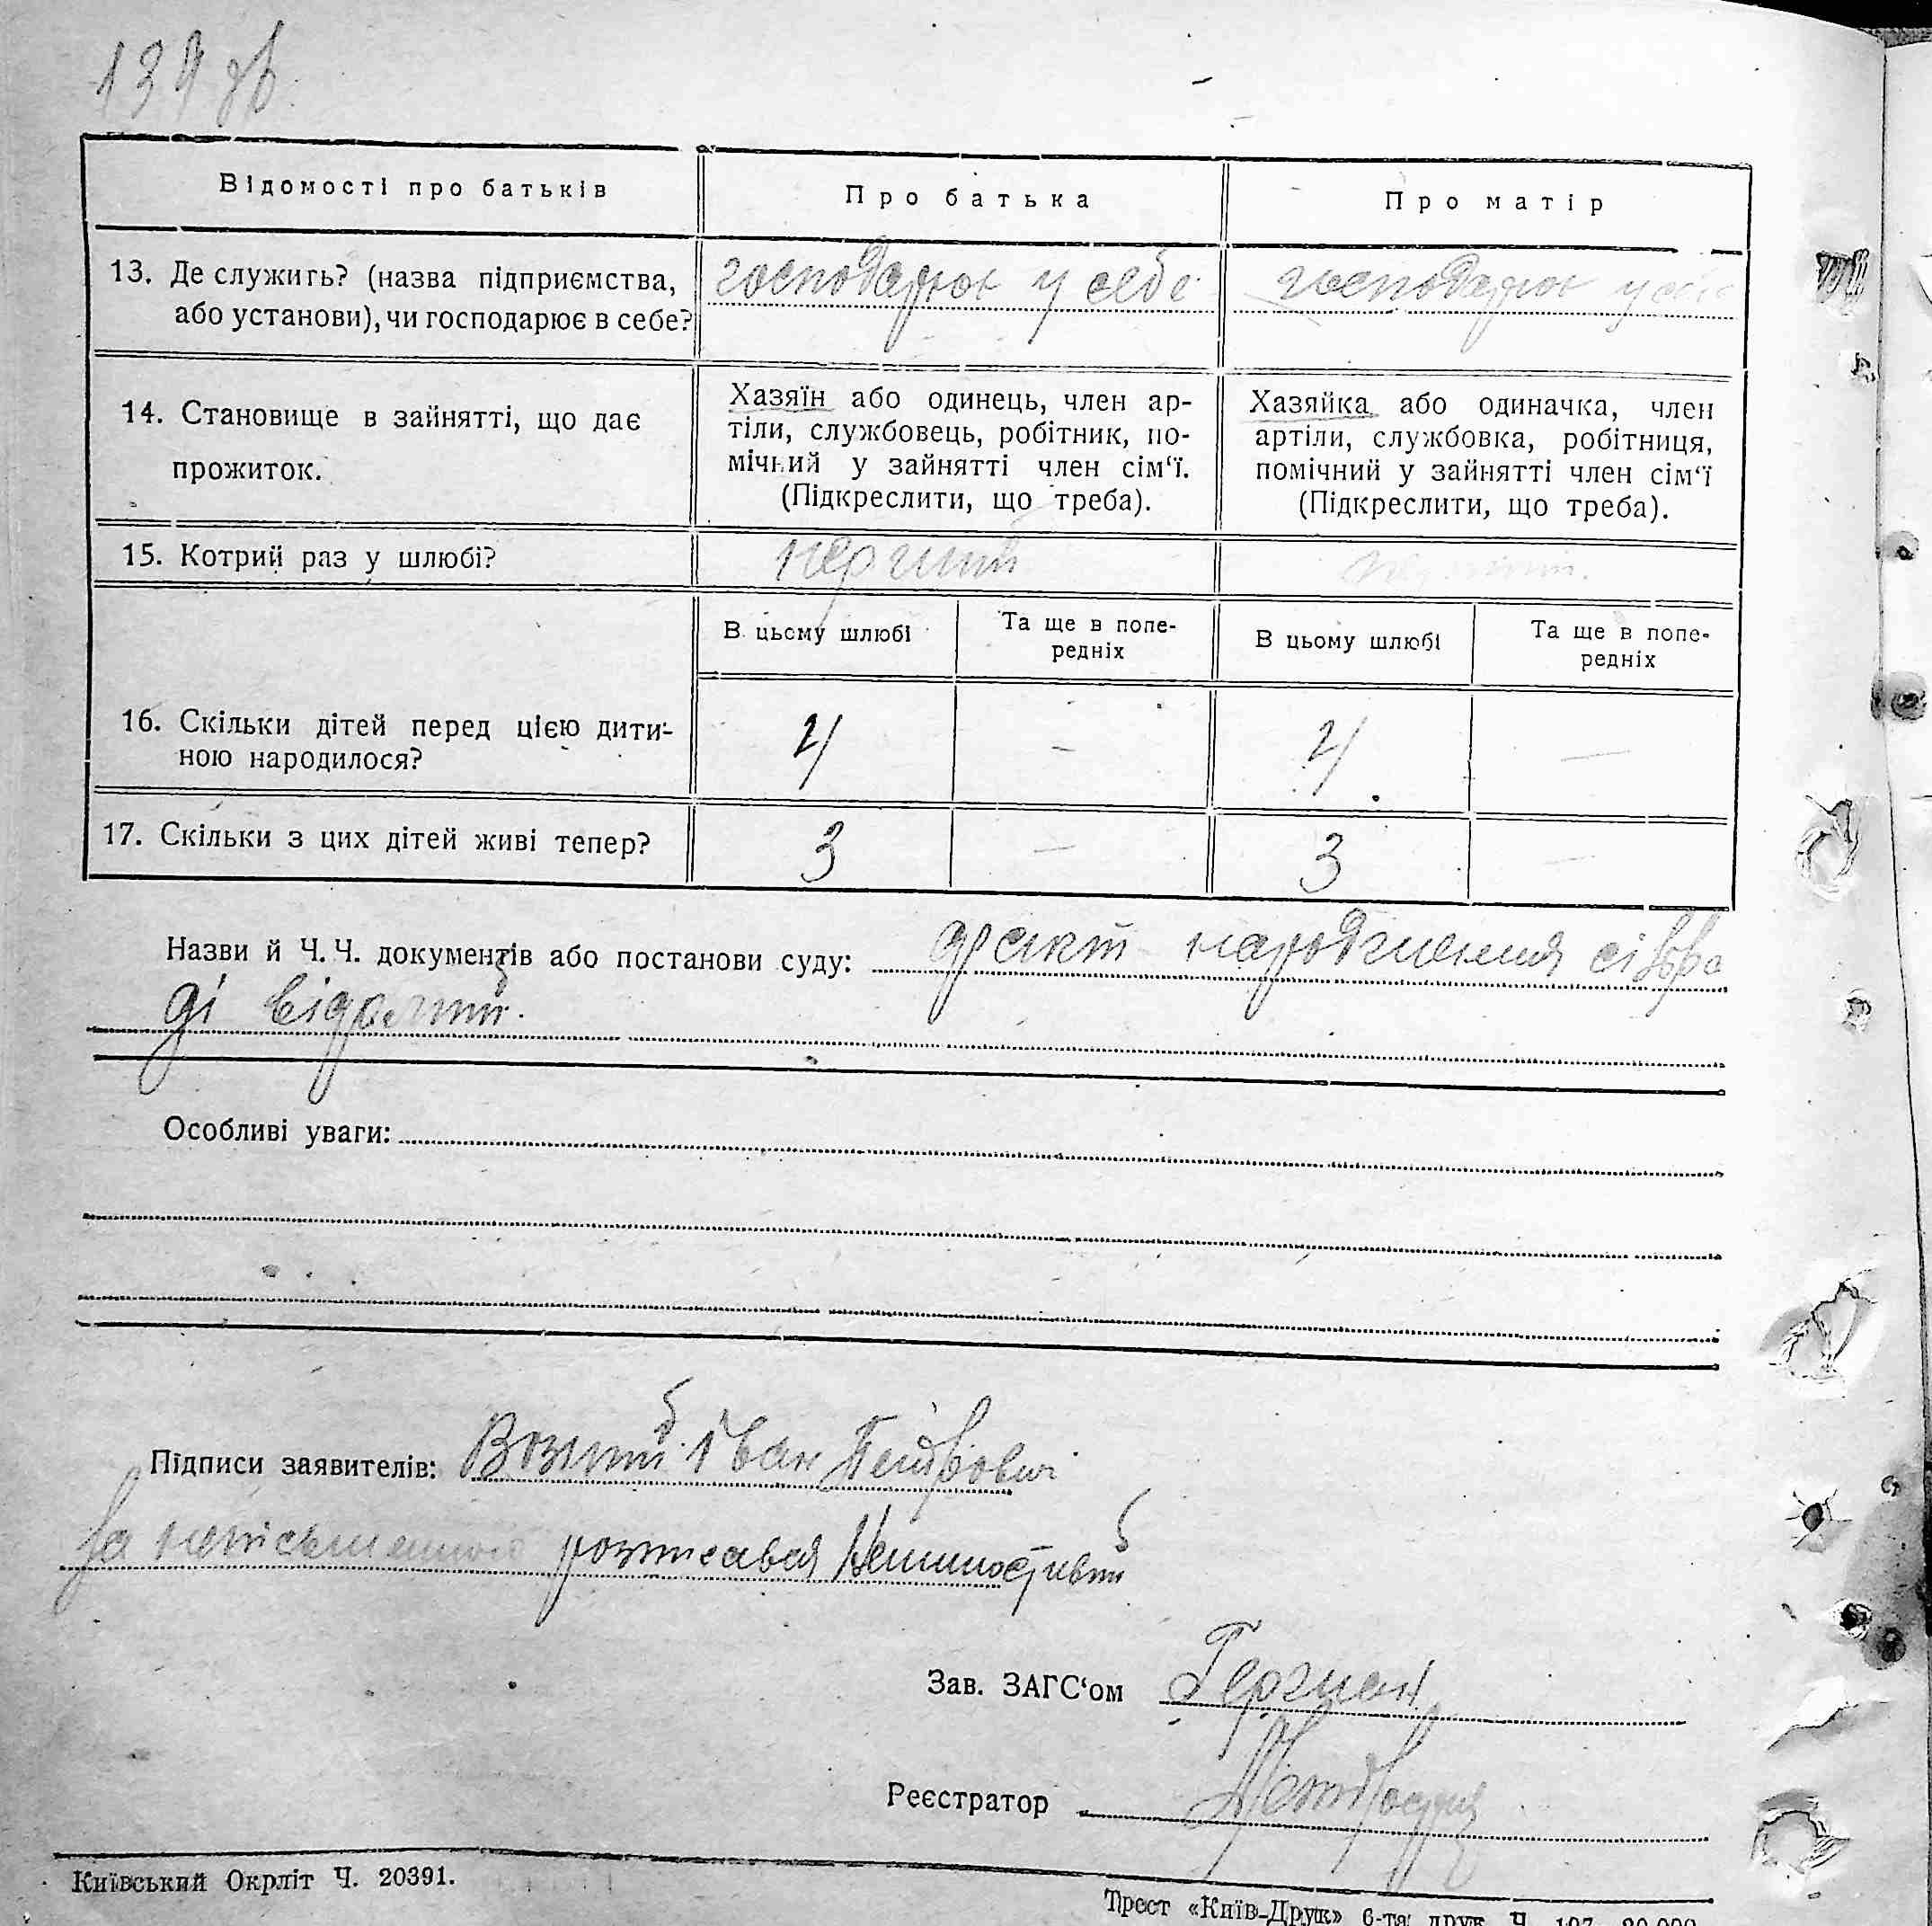 139 зв.
Відомості про батьків
Про батька
Про матір
13. Де служить? (назва підприємства, або установи), чи господарює в себе?
господарює у себе
господарює у себе
14. Становище в зайнятті, що дає прожиток.
Хазяїн або одинець, член ар-
тіли, службовець, робітник, по-
мічний у зайнятті член сім‘ї.
(Підкреслити, що треба).
Хазяйка або одиначка, член
артіли, службовка, робітниця,
помічний у зайнятті член сім‘ї
(Підкреслити, що треба).
15. Котрий раз у шлюбі?
перший
перший.
В цьому шлюбі
Та ще в попе-
редніх
В цьому шлюбі
Та ще в попе-
редніх
16. Скільки дітей перед цією дити-
ною народилося?
4
—
4
—
17. Скільки з цих дітей живі тепер?
3
—
3
—
Назви й Ч. Ч. документів або постанови суду: факт народження сільра
ді відомий.
Особливі уваги:
Підписи заявителів: Возний Іван Петрович
За неписьменного розписався Немилостивий
Зав. ЗАГС‘ом
Реєстратор
Київський Окрліт Ч. 20391.
Трест «Київ-Друк» 6-та друк. Ч.